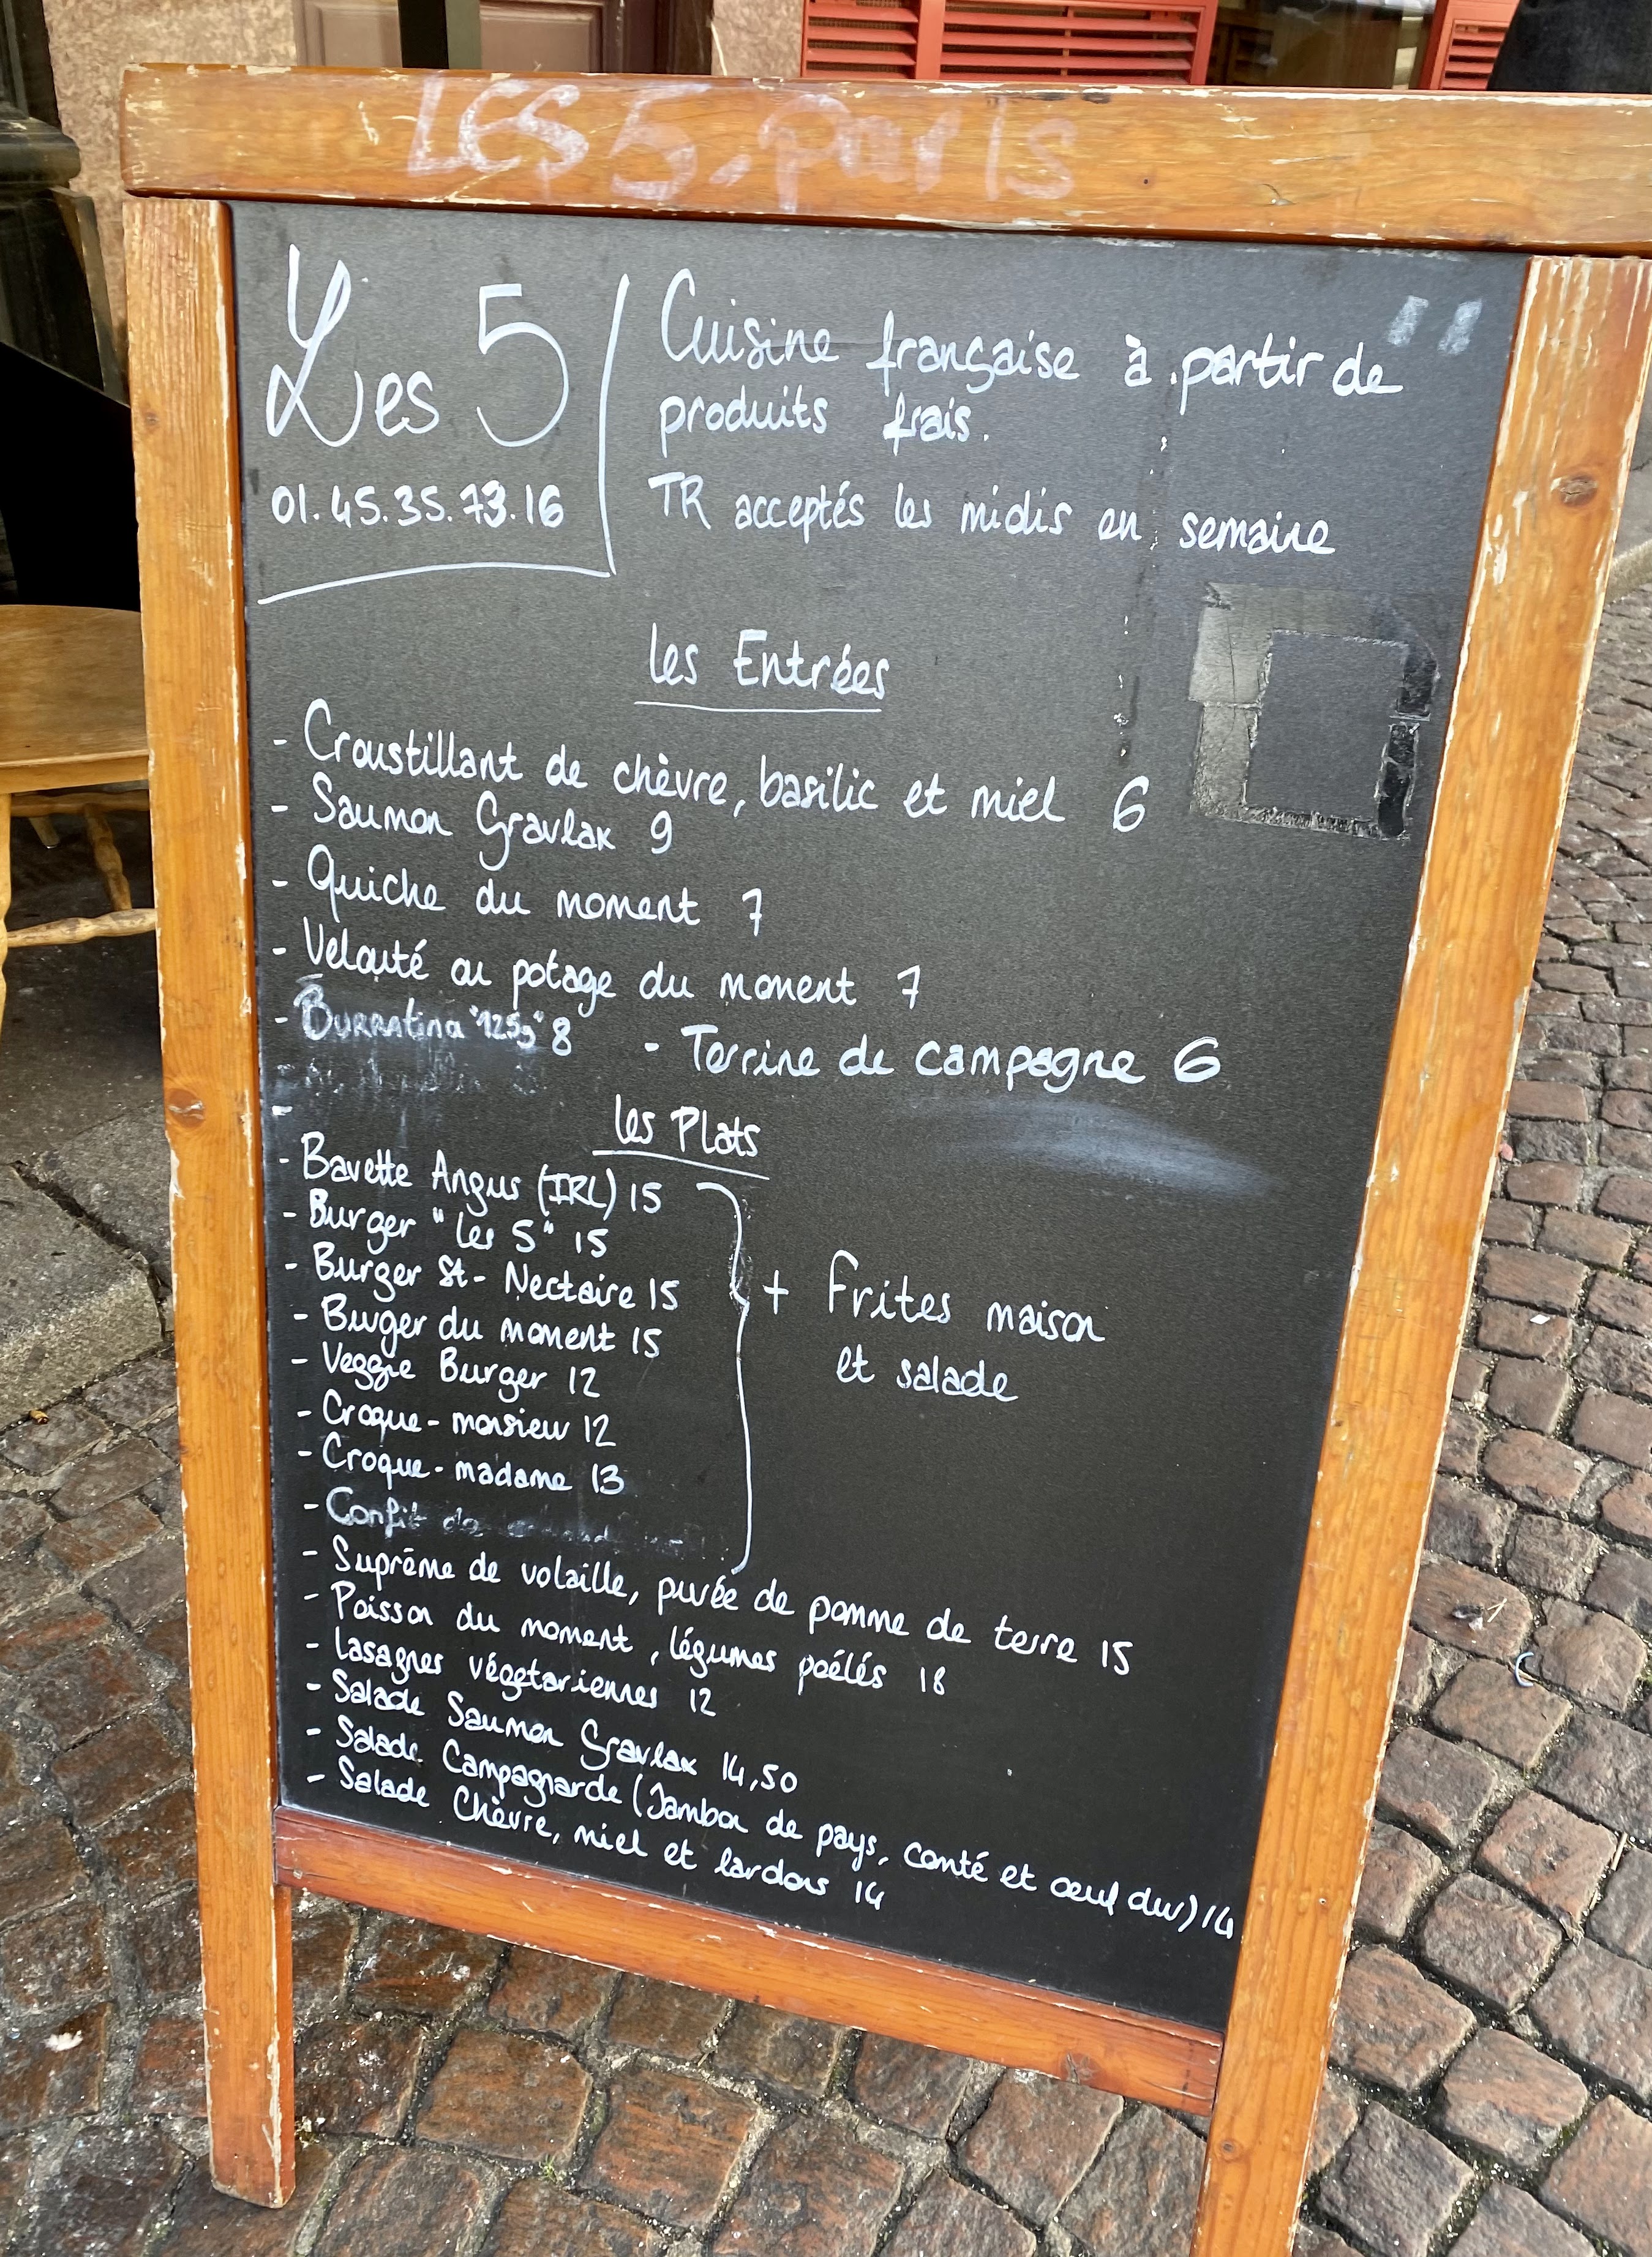 LES 5. Paris
Les 5
01.45.35.73.16
Cuisine française à partir de
produits frais.
TR acceptés les midis en semaine
les Entrées
- Croustillant de chèvre, basilic et miel 6
- Saumon Gravlax 9
- Quiche du moment 7
- Velouté ou potage du moment 7
- Burratina "125g" 8
- Terrine de campagne 6
les Plats
- Bavette Angus (IRL) 15
- Burger "Les 5" 15
- Burger St-Nectaire 15
- Burger du moment 15
- Veggie Burger 12
- Croque-monsieur 12
- Croque-madame 13
- Confit de
+ Frites maison
et salade
- Suprême de volaille, purée de pomme de terre 15
- Poisson du moment, légumes poélés 18
- Lasagnes végétariennes 12
- Salade Saumon Gravlax 14,50
- Salade Campagnarde (Jambon de pays, comté et œuf dur) 14
- Salade Chèvre, miel et lardons 14